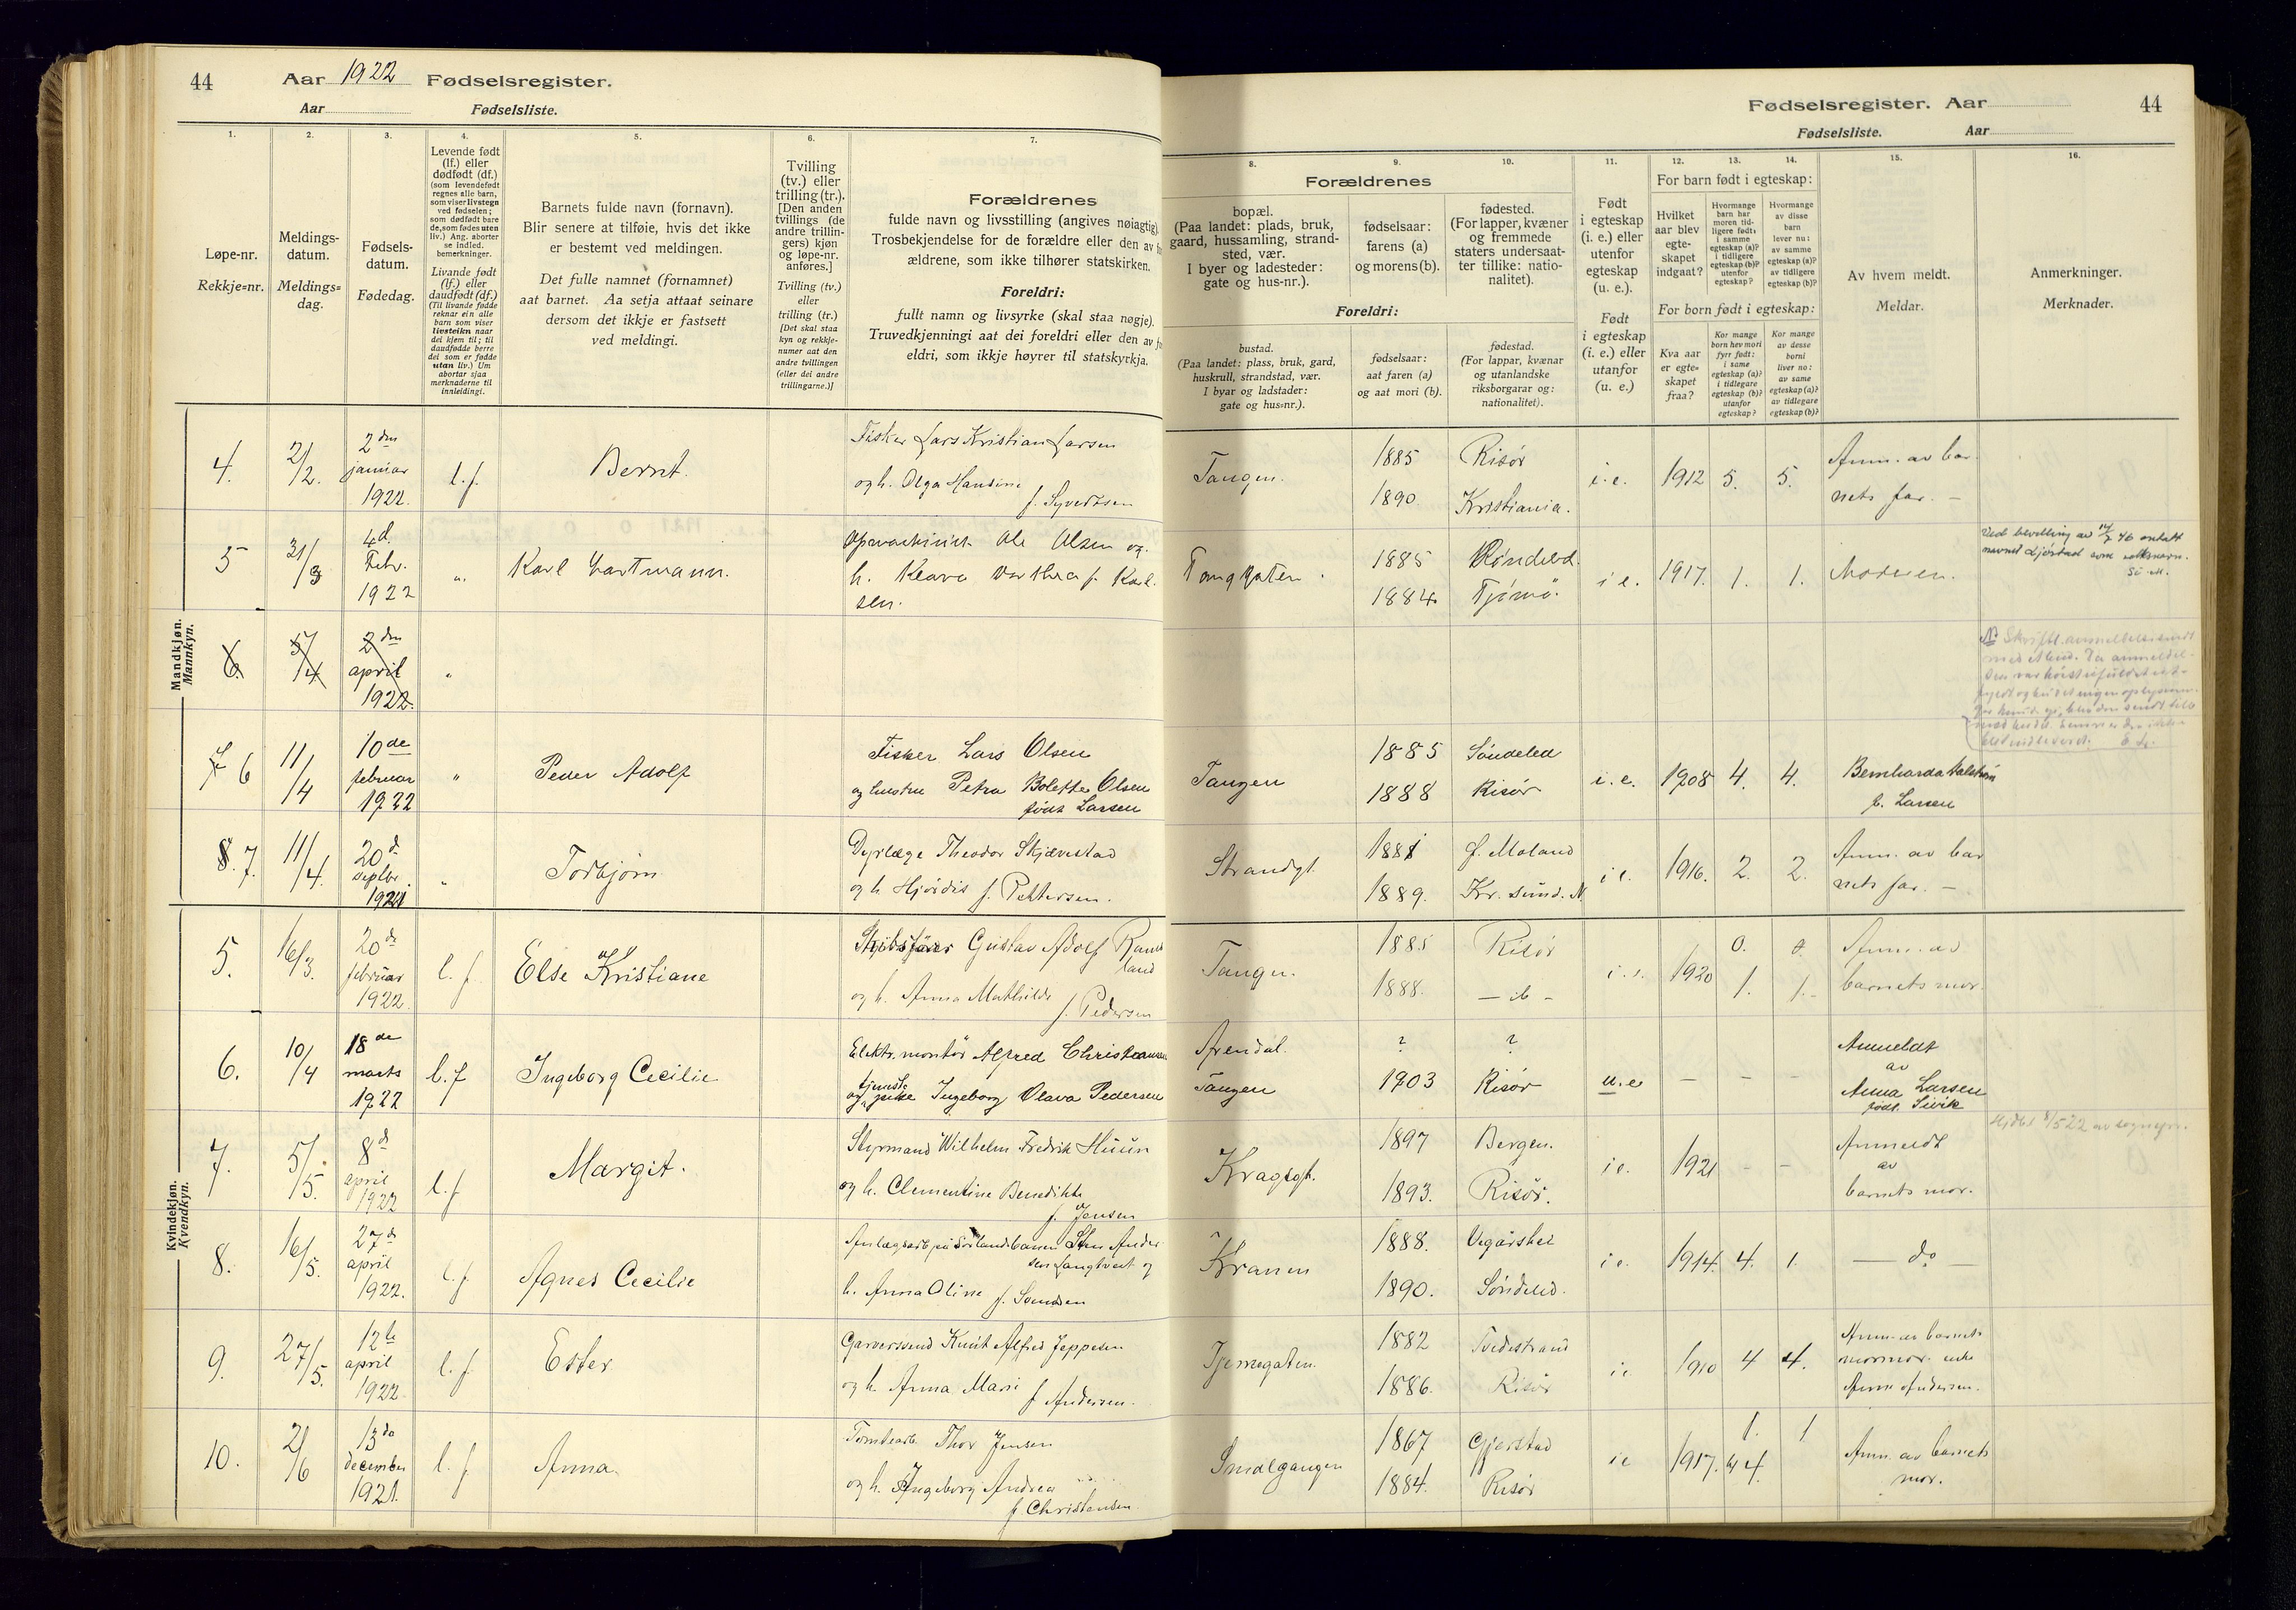 44
Aar 1922 Fødselsregister.
Aar Fødselsliste.
Fødselsregister. Aar
44
Fødselsliste. Aar
1.
2.
3.
4.
5.
6.
7.
8.
9.
10.
11.
12.
13.
14.
15.
16.
Løpe-nr.
Rekkje-nr.
Meldings-
datum.
Meldings-
dag.
Fødsels-
datum.
Fødedag.
Levende født
(lf.) eller
dødfødt (df.)
(som levendefødt
regnes alle barn,
som viser livstegn
ved fødselen;
som dødfødt bare
de, som fødes uten
liv.) Ang. aborter
se indled.
bemerkninger.
Livande født
(lf.) eller
daudfødt (df.)
(Til livande fødde
reknar ein alle
barn som viser
livsteikn naar
dei kjem til; til
daudfødde berre
dei som er fødde
utan liv.) Um
abortar sjaa
merknaderne til
innleidingi.
Barnets fulde navn (fornavn).
Blir senere at tilføie, hvis det ikke
er bestemt ved meldingen.
Det fulle namnet (fornamnet)
aat barnet. Aa setja attaat seinare
dersom det ikkje er fastsett
ved meldingi.
Tvilling
(tv.) eller
trilling (tr.).
[Den anden
tvillings (de
andre trillin-
gers) kjøn
og løpe-nr.
anføres.]
Tvilling (tv.)
eller
trilling (tr.)
[Det skal staa
kyn og rekkje-
numer aat den
andre tvillingen
(eller dei andre
trillingarne.)]
Forældrenes
fulde navn og livsstilling (angives nøiagtig).
Trosbekjendelse for de forældre eller den av
ældrene, som ikke tilhører statskirken.
Foreldri:
fullt namn og livsyrke (skal staa nøgje).
Truvedkjenningi aat dei foreldri eller den av
eldri, som ikkje høyrer til statskyrkja.
Forældrenes
bopæl.
(Paa landet: plads, bruk,
gaard, hussamling, strand-
sted, vær.
I byer og ladesteder:
gate og hus-nr.).
fødselsaar:
farens (a)
og morens (b).
fødested.
(For lapper, kvæner
og fremmede
staters undersaat-
ter tillike: natio-
nalitet).
Foreldri:
bustad.
(Paa landet: plass, bruk, gard,
huskrull, strandstad, vær.
I byar og ladstader:
gate og hus-nr.).
fødselsaar:
aat faren (a)
og aat mori (b).
fødestad.
(For lappar, kvænar
og utanlandske
riksborgarar og:
nationalitet).
Født
i egteskap
(i. e.) eller
utenfor
egteskap
(u. e.).
Født
i egteskap
(i. e.) eller
utanfor
(u. e.)
For barn født i egteskap:
Hvilket
aar blev
egte-
skapet
indgaat?
Hvormange
barn har
moren tid-
ligere født:
i samme
egteskap (a)?
i tidligere
egteskap (b)?
utenfor
egteskap?
Hvormange
av disse
barn
lever nu:
av samme
egteskap (a)?
av tidligere
egteskap (b)?
For born født i egteskap:
Kva aar
er egte-
skapet
fraa?
Kor mange
born hev mori
fyrr født:
i same
egteskap (a)?
i tidlegare
egteskap (b)?
utanfor
egteskap?
Kor mange
av desse
borni
liver no:
av same
egteskap (a)?
av tidlegare
egteskap (b)?
Av hvem meldt.
Meldar.
Anmerkninger.
Merknader.
Mandkjøn.
Mannkyn.
4. 2/2. 2den januar 1922. l.f. Bernt. Fisker Lars Kristian Larsen
og h. Olga Hansine f. Syvertsen
Tangen. 1885 Risør i.e. 1912 5. 5. Anm. av bar
1890. Kristiania. nets far. —
5 31/3 4d. Febr. 1922 „ Karl Hartmann. Ole Olsen og
h. Klara f. Karl-
sen.
Tanggaten. 1885 Søndeled. i e. 1917. 1. 1. Moderen.
1884. Tjømø.
Ved bevilling av 46 antatt
navnet som
6. 5/4 2den april 1922. „
7 6 11/4 10de februar 1922 „ Peder Adolf Fisker Lars Olsen
og hustru Petra Bolette Olsen
født Larsen
Tangen 1885 Søndeled i.e. 1908 4. 4. Bernharda
1888 Risør f. Larsen
8. 7. 11/4. 20d septbr. 1921 „ Torbjørn Dyrlæge Theodor Skjævestad
og h Hjørdis f. Pettersen.
Strandgt. 1881 Ø. Moland i e. 1916. 2. 2. Anm. av bar
1889. Kr. sund. N nets far. —
Kvindekjøn.
Kvendkyn.
5. 16/3. 20de februar 1922. l.f. Else Kristiane Skibsfører Gustav Adolf
og h. Anna Mathilde f. Pedersen
Tangen. 1885 Risør i.e. 1920 0. 0. Anm. av
1888. — ib — 1. 1.- barnets mor.
6. 10/4 18de marts 1922 l.f Ingeborg Cecilie Elektr. montør Alfred Christiansen
og tjenestepike Ingeborg Olava Pedersen
Arendal. ? ? Anmeldt
Tangen 1903 Risør u.e — — — av
Anna Larsen
født Sivik
7. 5/5. 8d april 1922 l.f Margit. Styrmand Wilhelm Fredrik Huun
og h. Clementine Benedikte
f. Jensen
Kragsgt. 1897 Bergen. i e. 1921 - - Anmeldt
1893. Risør. av
barnets mor.
8. 16/5. 27d april 1922. l.f Agnes Cecilie Anlægsarb. på Sørlandsbanen Ander
sen Langtveit og
h. Anna Oline f.
Kranen 1888. Vegårshei i e. 1914. 4. 1. — do —
1890. Søndeled.
9. 27/5. 12te april 1922. l.f Ester Garversvend Knut Alfred Jeppesen
og h. Anna Marie f Andersen.
Tjennegaten. 1882 Tvedestrand i e 1910 4 4. Anm. av barnets
1886. Risør mormor. enke
Anne Andersen.
10. 2/6 13de december 1921. l.f Anna. Tomtearb. Thor Jensen
og h. Ingeborg Andrea
f. Christensen.
Smalgangen 1867 Gjerstad i e 1917. 1. 1 Anm. av barnets
1884. Risør 4. mor.